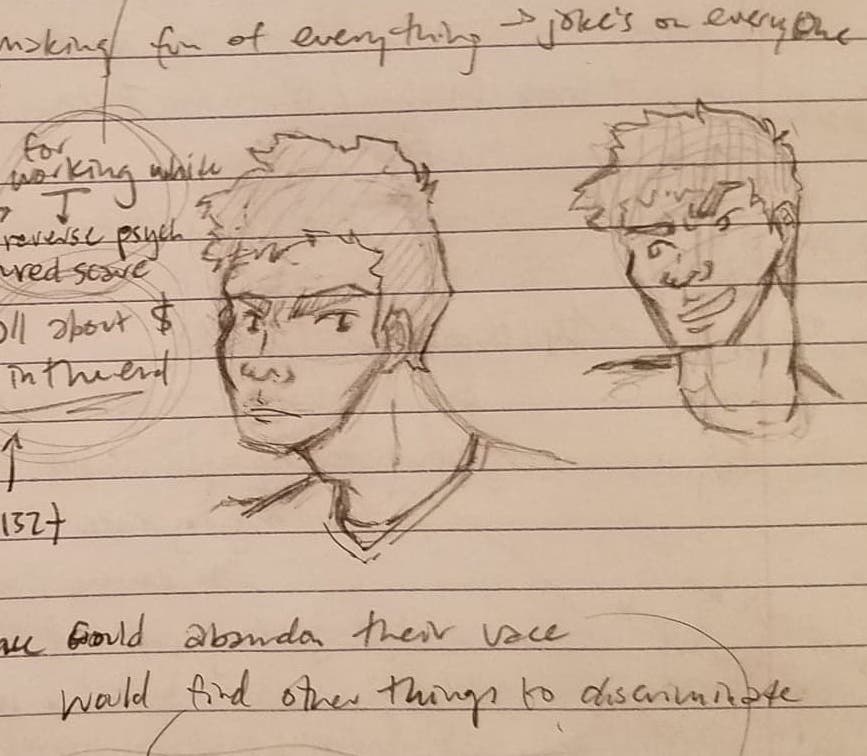 making fun of everything → joke's on everyone
for
working while
reverse psych
red scare
all about $
in the end
132+
could abandon their race
would find other things to discriminate